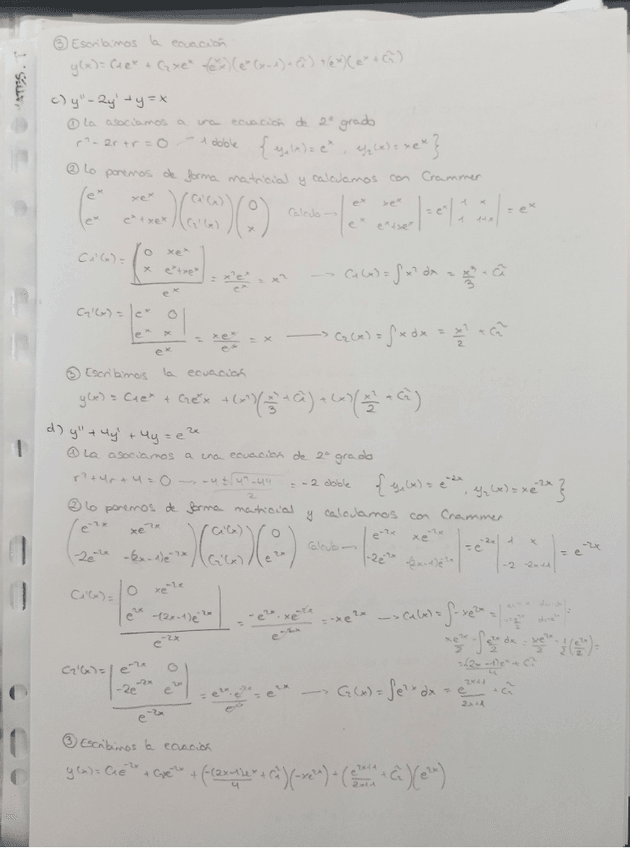 ③ Escribimos la ecuación
y(x) = C1e^x + C2xe^x + (e^x)(e^x(x-1) + C̃1) + (e^x)(e^x + C̃2)
c) y'' - 2y' + y = x
① La asociamos a una ecuación de 2º grado
r² - 2r + r = 0 → 1 doble { y1(x) = e^x, y2(x) = xe^x }
② Lo ponemos de forma matricial y calculamos con Crammer
(e^x xe^x; e^x e^x+xe^x)(C1'(x); C2'(x))(0; x) Calculo → |e^x xe^x; e^x e^x+xe^x| = e^x |1 x; 1 1+x| = e^x
C1'(x) = |0 xe^x; x e^x+xe^x| / e^x = x²e^x / e^x = x² → C1(x) = ∫x² dx = x³/3 + C̃1
C2'(x) = |e^x 0; e^x x| / e^x = xe^x / e^x = x → C2(x) = ∫x dx = x²/2 + C̃2
③ Escribimos la ecuación
y(x) = C1e^x + C2e^x x + (x²)(x³/3 + C̃1) + (x)(x²/2 + C̃2)
d) y'' + 4y' + 4y = e^2x
① La asociamos a una ecuación de 2º grado
r² + 4r + 4 = 0 → -4 ± √(4²-4·4) / 2 = -2 doble { y1(x) = e^-2x, y2(x) = xe^-2x }
② Lo ponemos de forma matricial y calculamos con Crammer
(e^-2x xe^-2x; -2e^-2x -(2x-1)e^-2x)(C1'(x); C2'(x))(0; e^2x) Calculo → |e^-2x xe^-2x; -2e^-2x -(2x-1)e^-2x| = e^-2x |1 x; -2 -2x+1| = e^-2x
C1'(x) = |0 xe^-2x; e^2x -(2x-1)e^-2x| / e^-2x = -e^2x · xe^-2x / e^-2x = -xe^2x → C1(x) = ∫-xe^2x =
xe^2x/2 - ∫e^2x/2 dx = xe^2x/2 - 1/2(e^2x/2) =
C2'(x) = |e^-2x 0; -2e^-2x e^2x| / e^-2x = e^2x → C2(x) = ∫e^2x dx = e^2x+1 / 2x+1 + C̃2
③ Escribimos la ecuación
y(x) = C1e^-2x + C2xe^-2x + (-(2x-1)e^x/4 + C̃1)(-xe^2x) + (e^2x+1/2x+1 + C̃2)(e^2x)